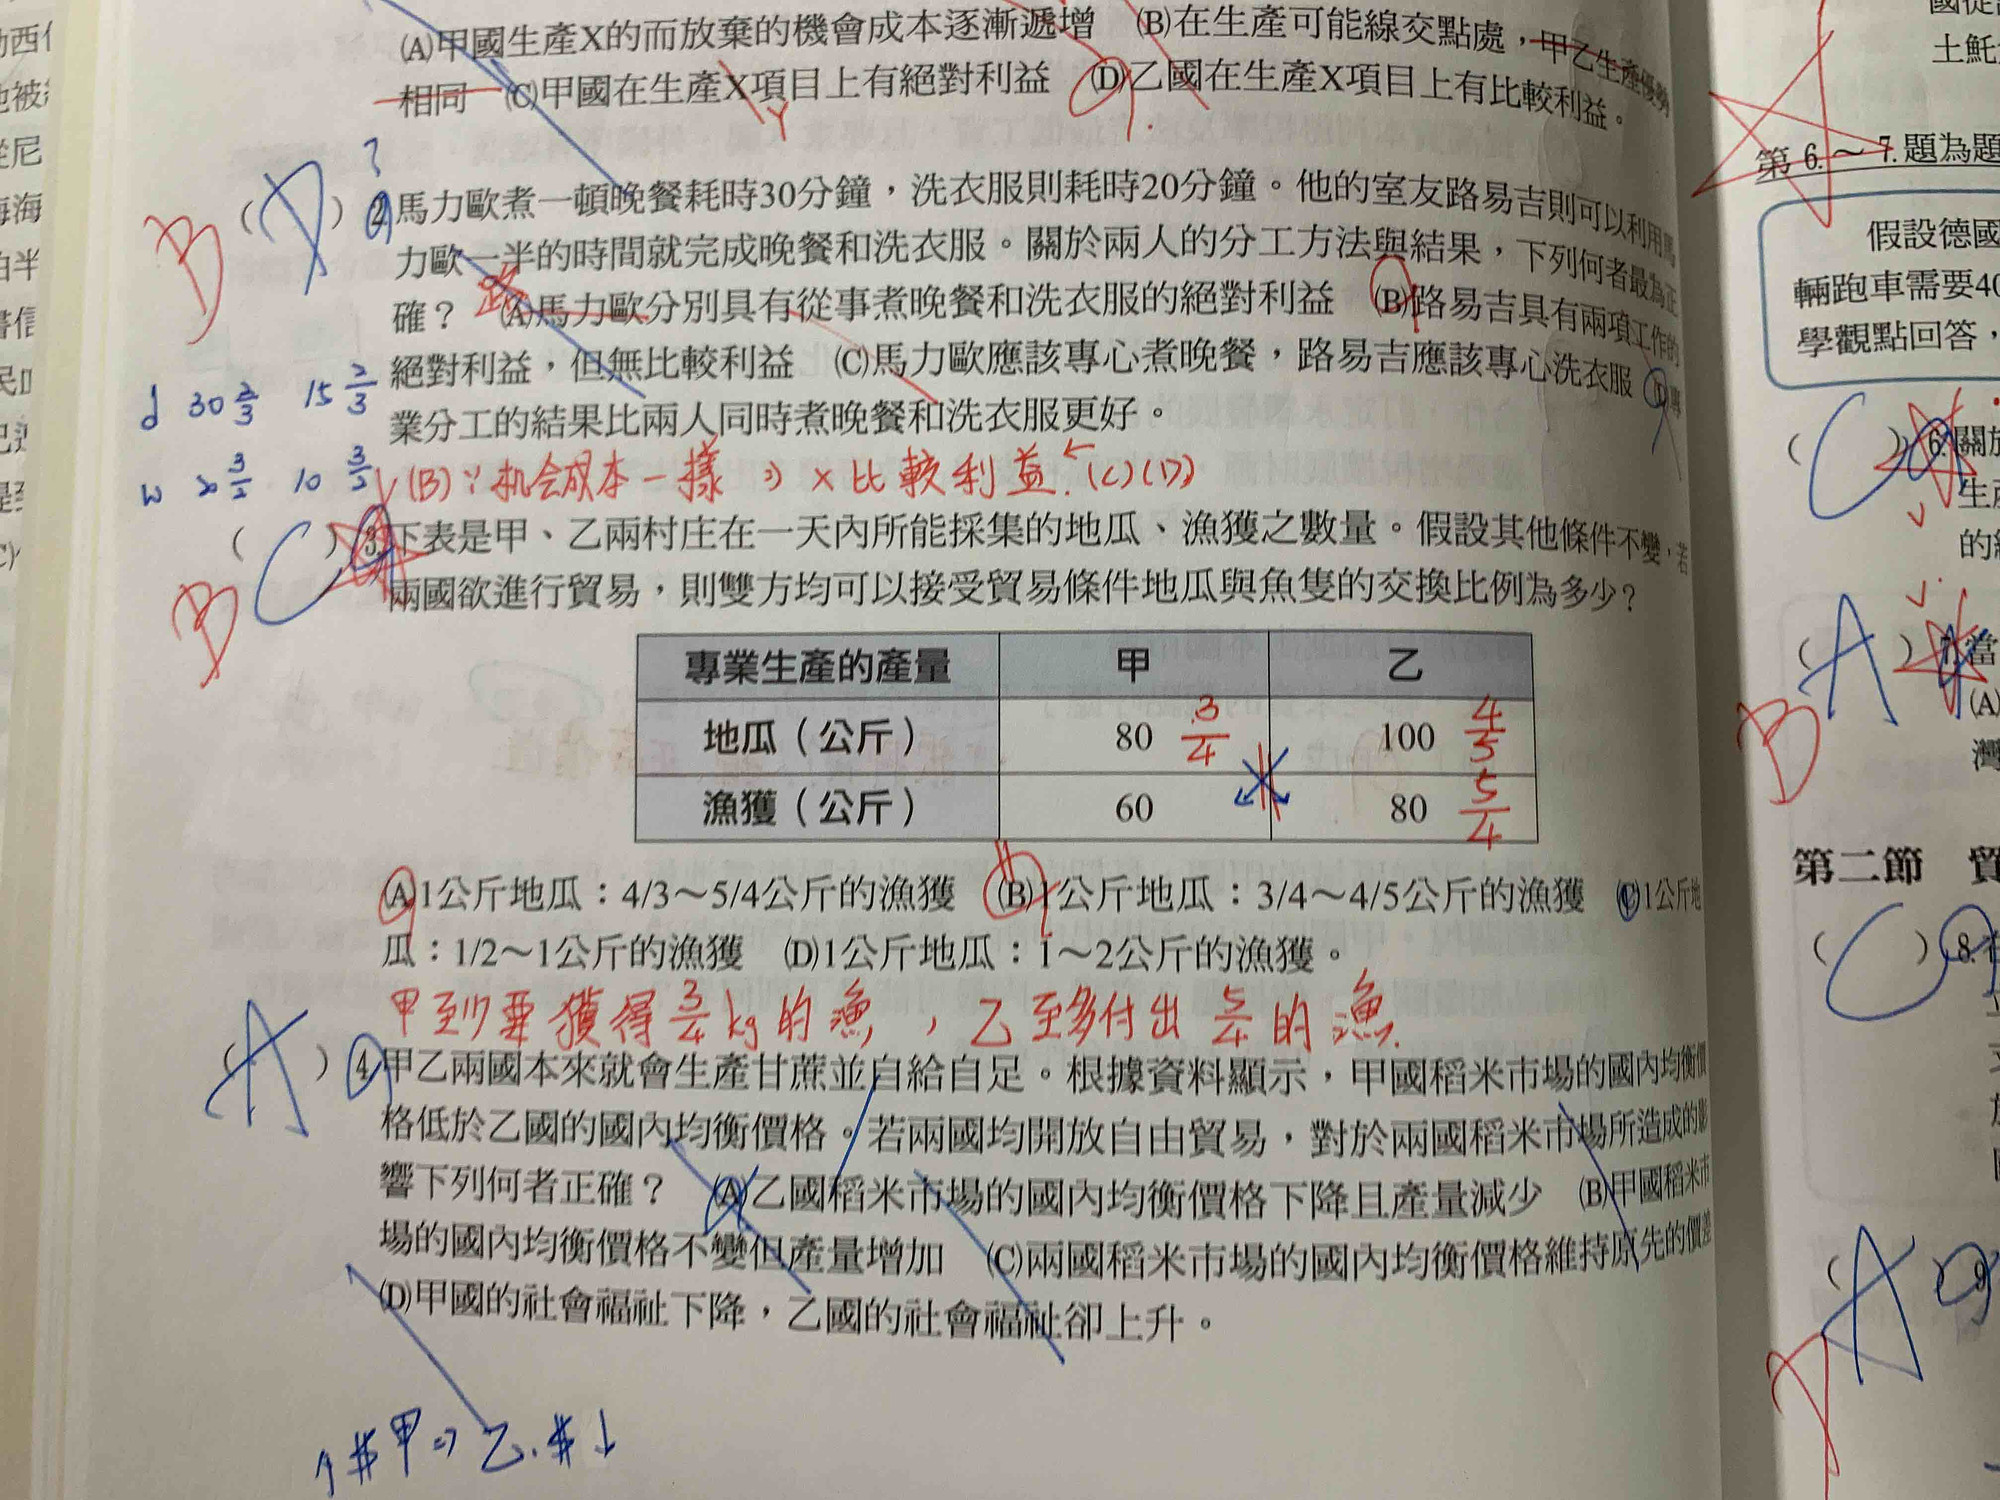 (A)甲國生產X的而放棄的機會成本逐漸遞增 (B)在生產可能線交點處，甲乙生產優勢
相同 (C)甲國在生產X項目上有絕對利益 (D)乙國在生產X項目上有比較利益。
Y
?
B ( D ) 2.馬力歐煮一頓晚餐耗時30分鐘，洗衣服則耗時20分鐘。他的室友路易吉則可以利用馬
力歐一半的時間就完成晚餐和洗衣服。關於兩人的分工方法與結果，下列何者最為正
路
確？ (A)馬力歐分別具有從事煮晚餐和洗衣服的絕對利益 (B)路易吉具有兩項工作的
絕對利益，但無比較利益 (C)馬力歐應該專心煮晚餐，路易吉應該專心洗衣服 (D)專
業分工的結果比兩人同時煮晚餐和洗衣服更好。
d 30 2/3 15 2/3
w 20 3/2 10 3/2
(B)∵机会成本一樣 ⇒ ×比較利益.←(C)(D)
B ( C ) 3.下表是甲、乙兩村庄在一天內所能採集的地瓜、漁獲之數量。假設其他條件不變，若
兩國欲進行貿易，則雙方均可以接受貿易條件地瓜與魚隻的交換比例為多少？
專業生產的產量 甲 乙
地瓜（公斤） 80 3/4 100 4/5
漁獲（公斤） 60 80 5/4
(A)1公斤地瓜：4/3～5/4公斤的漁獲 (B)1公斤地瓜：3/4～4/5公斤的漁獲 (C)1公斤地
瓜：1/2～1公斤的漁獲 (D)1公斤地瓜：1～2公斤的漁獲。
甲至少要獲得3/4kg的漁，乙至多付出5/4的漁.
( A ) 4.甲乙兩國本來就會生產甘蔗並自給自足。根據資料顯示，甲國稻米市場的國內均衡價
格低於乙國的國內均衡價格。若兩國均開放自由貿易，對於兩國稻米市場所造成的影
響下列何者正確？ (A)乙國稻米市場的國內均衡價格下降且產量減少 (B)甲國稻米市
場的國內均衡價格不變但產量增加 (C)兩國稻米市場的國內均衡價格維持原先的價差
(D)甲國的社會福祉下降，乙國的社會福祉卻上升。
↑$甲⇒乙.$↓
土魠
第 6.～7.題為題
假設德國
輛跑車需要40
學觀點回答，
( C ) 6.關於
生產
的
B ( A ) 7.當
(A)
灣
第二節 貿
( C ) 8.在
( A ) 9.